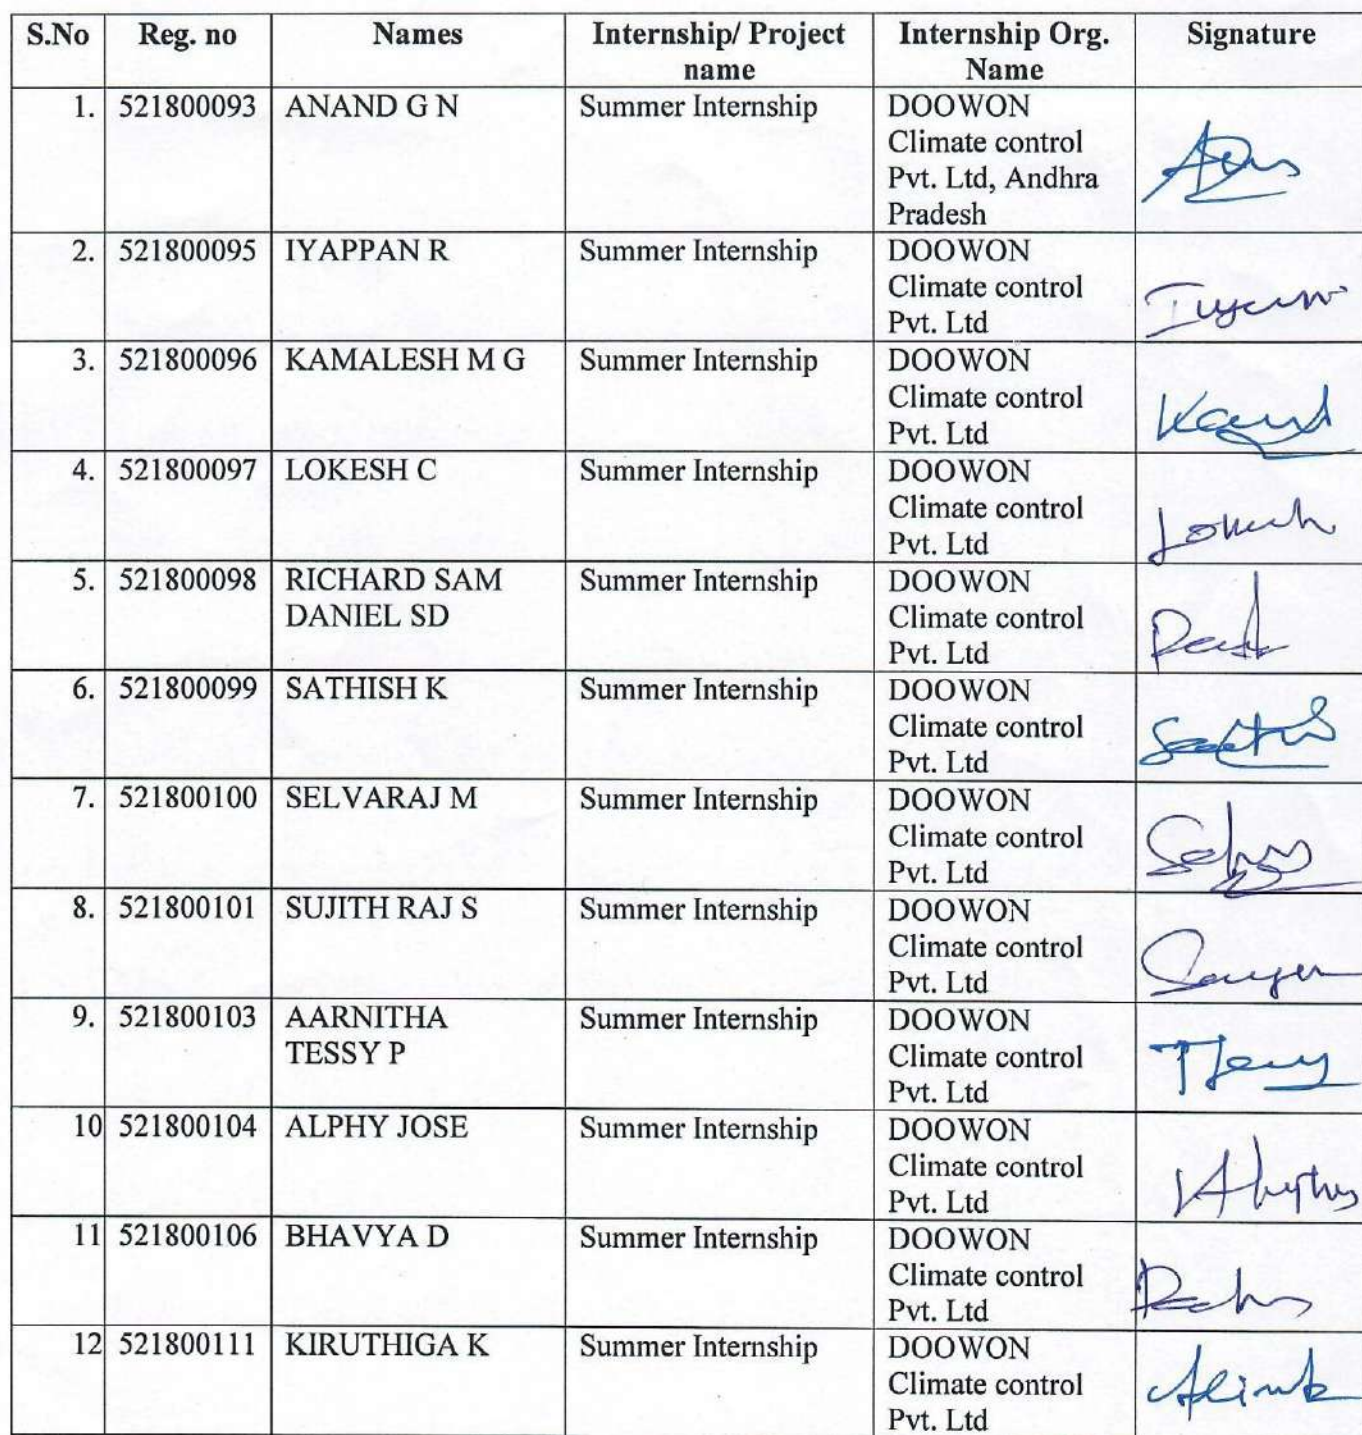 S.No Reg. no Names Internship/ Project Internship Org. Signature
name Name
1. 521800093 ANAND G N Summer Internship DOOWON
Climate control
Pvt. Ltd, Andhra
Pradesh
2. 521800095 IYAPPAN R Summer Internship DOOWON
Climate control
Pvt. Ltd
3. 521800096 KAMALESH M G Summer Internship DOOWON
Climate control
Pvt. Ltd
4. 521800097 LOKESH C Summer Internship DOOWON
Climate control
Pvt. Ltd Lokesh
5. 521800098 RICHARD SAM Summer Internship DOOWON
DANIEL SD Climate control
Pvt. Ltd
6. 521800099 SATHISH K Summer Internship DOOWON
Climate control
Pvt. Ltd
7. 521800100 SELVARAJ M Summer Internship DOOWON
Climate control
Pvt. Ltd
8. 521800101 SUJITH RAJ S Summer Internship DOOWON
Climate control
Pvt. Ltd
9. 521800103 AARNITHA Summer Internship DOOWON
TESSY P Climate control
Pvt. Ltd
10 521800104 ALPHY JOSE Summer Internship DOOWON
Climate control
Pvt. Ltd
11 521800106 BHAVYA D Summer Internship DOOWON
Climate control
Pvt. Ltd
12 521800111 KIRUTHIGA K Summer Internship DOOWON
Climate control
Pvt. Ltd